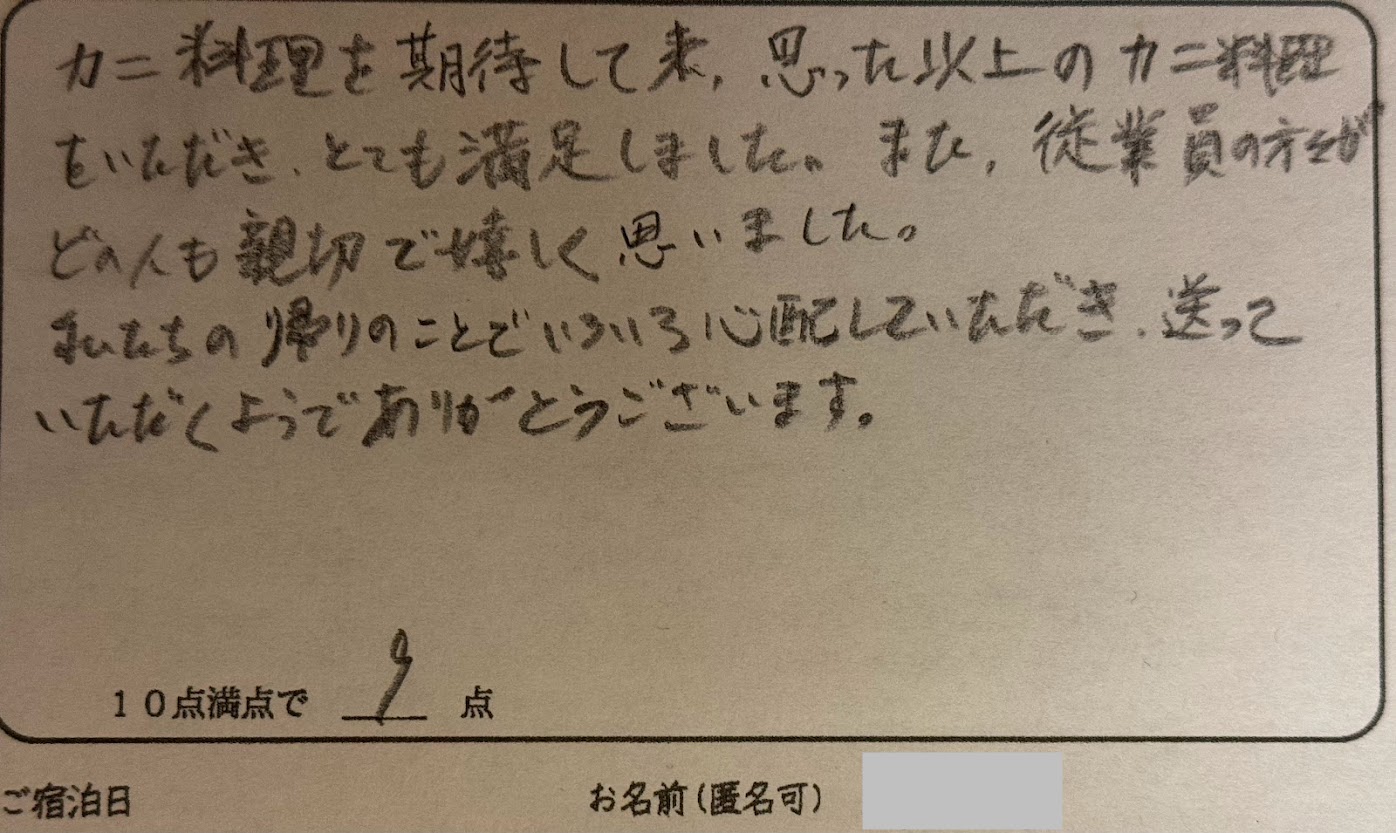 カニ料理を期待して来、思った以上のカニ料理
をいただき、とても満足しました。また、従業員の方々が
どの人も親切で嬉しく思いました。
私たちの帰りのことでいろいろ心配していただき、送って
いただくようでありがとうございます。
10点満点で 9 点
ご宿泊日 お名前(匿名可)